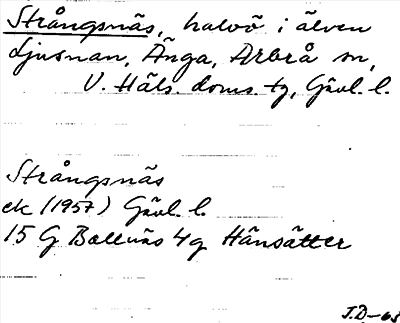 Strångsnäs, halvö i älven
Ljusnan, Änga, Arbrå sn,
V. Häls. doms. tg, Gävl. l.
Strångsnäs
ek (1957) Gävl. l.
15 G Bollnäs 4g Hänsätter
J.D-68